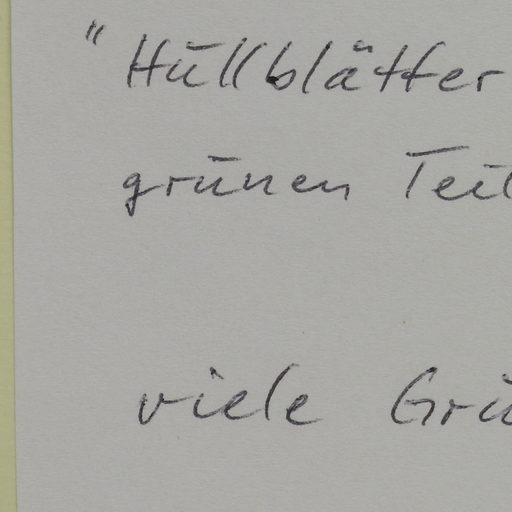 " Hüllblätter
grünen Teil
viele Grü